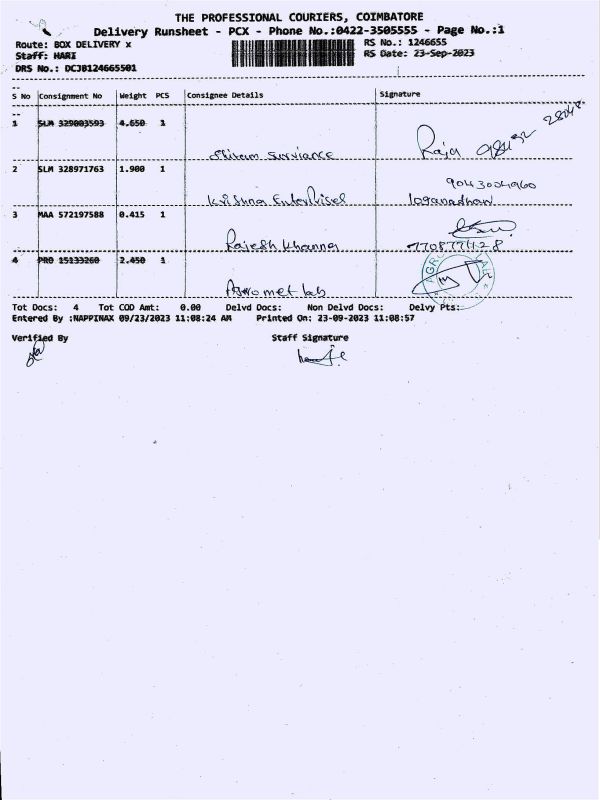 THE PROFESSIONAL COURIERS, COIMBATORE
Delivery Runsheet - PCX - Phone No.:0422-3505555 - Page No.:1
Route: BOX DELIVERY x RS No.: 1246655
Staff: HARI RS Date: 23-Sep-2023
DRS No.: DCJB124665501
S No Consignment No Weight PCS Consignee Details Signature
1 SLM 329003593 4.650 1
Raja
2 SLM 328971763 1.900 1
9043004960
Krishna Enterprises Loganadhan
3 MAA 572197588 0.415 1
Rajesh Khanna 7708771128
4 PRO 15133260 2.450 1
Agromet lab
Tot Docs: 4 Tot COD Amt: 0.00 Delvd Docs: Non Delvd Docs: Delvy Pts:
Entered By :NAPPINAX 09/23/2023 11:08:24 AM Printed On: 23-09-2023 11:08:57
Verified By Staff Signature